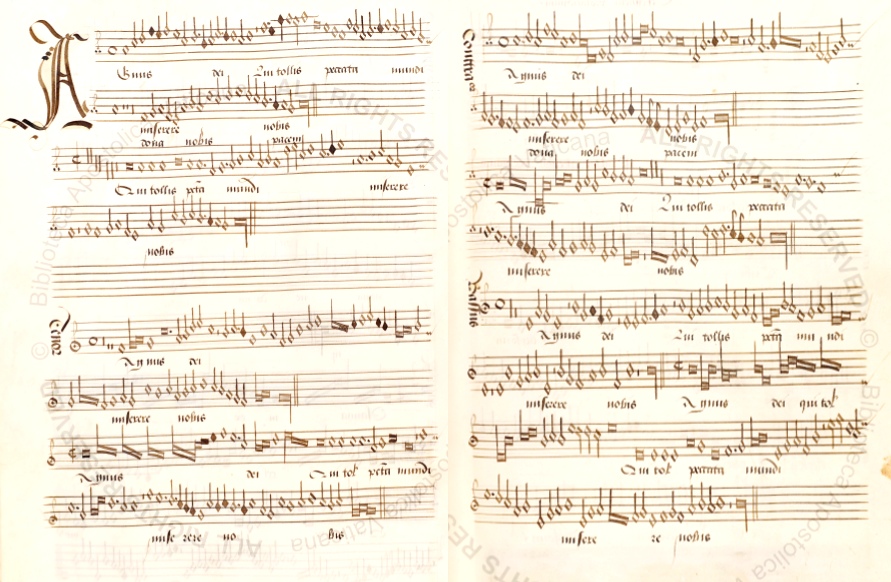 Agnus dei Qui tollis peccata mundi
miserere nobis
dona nobis pacem
Qui tollis pcta mundi miserere
nobis
Tenor
Agnus dei
miserere nobis
Agnus dei Qui tol pcta mundi
mise rere no bis
Contra
Agnus dei
miserere nobis
dona nobis pacem
Agnus dei Qui tollis peccata
miserere nobis
Bassus
Agnus dei Qui tollis pcta mu ndi
miserere nobis Agnus dei qui tol
Qui tol peccata mundi
misere re nobis
© Biblioteca Apostolica Vaticana
ALL RIGHTS RESERVED